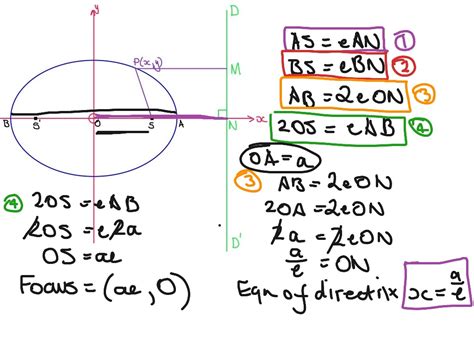 y
D
P(x,y)
M
B
S'
O
S
A
N
x
D'
AS = eAN ①
BS = eBN ②
AB = 2eON ③
2OS = eAB ④
OA = a
③ AB = 2eON
2OA = 2eON
2a = 2eON
a/e = ON
Eqn of directrix x = a/e
④ 2OS = eAB
2OS = e2a
OS = ae
Focus = (ae, 0)